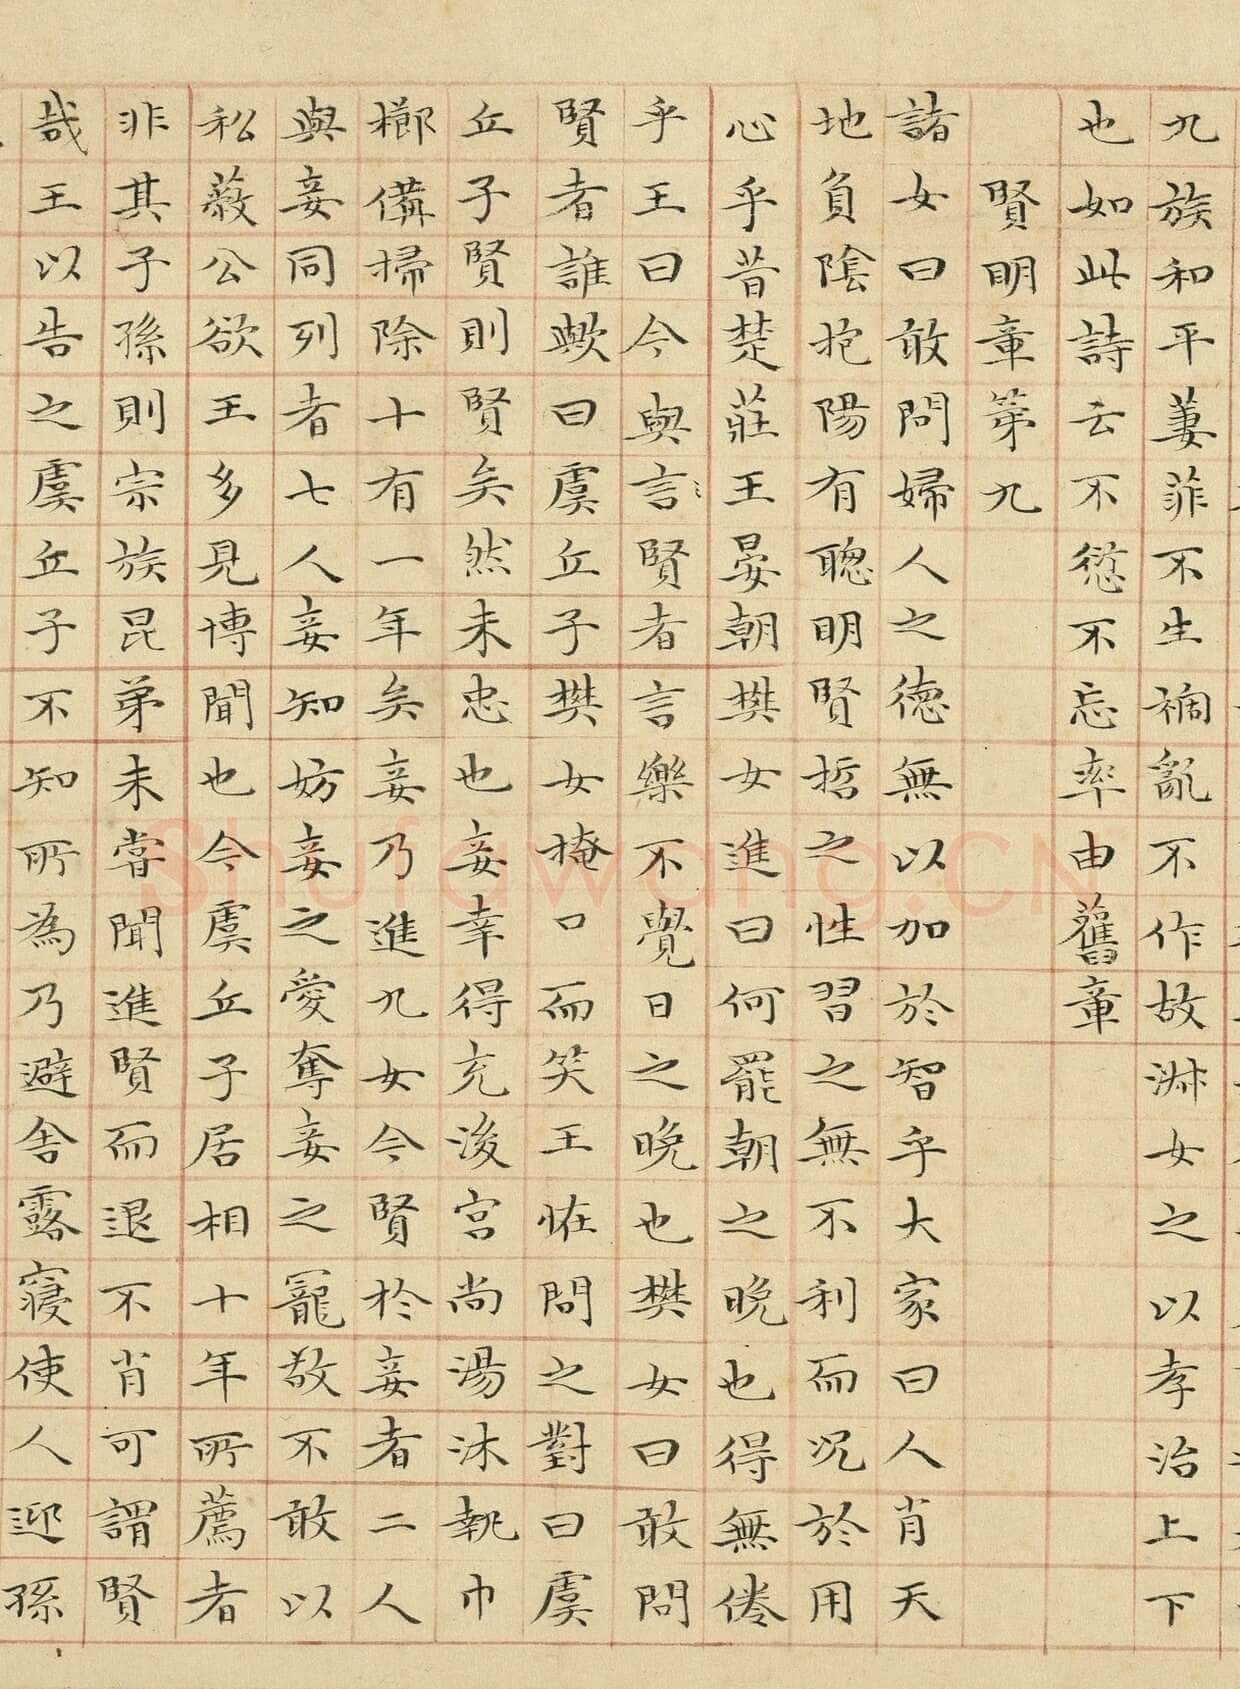 九族和平萋菲不生禍亂不作故淋女之以孝治上下
也如此詩云不愆不忘率由舊章
賢明章第九
諸女曰敢問婦人之德無以加於智乎大家曰人肖天
地負陰抱陽有聰明賢哲之性習之無不利而況於用
心乎昔楚莊王晏朝樊女進曰何罷朝之晚也得無倦
乎王曰今與言賢者言樂不覺日之晚也樊女曰敢問
賢者誰歟曰虞丘子樊女掩口而笑王恠問之對曰虞
丘子賢則賢矣然未忠也妾幸得充後宮尚湯沐執巾
櫛備掃除十有一年矣妾乃進九女今賢於妾者二人
與妾同列者七人妾知妨妾之愛奪妾之寵敢不敢以
私蔽公欲王多見博聞也今虞丘子居相十年所薦者
非其子孫則宗族昆弟未嘗聞進賢而退不肖可謂賢
哉王以告之虞丘子不知所為乃避舍露寢使人迎孫
Shufawang.CN